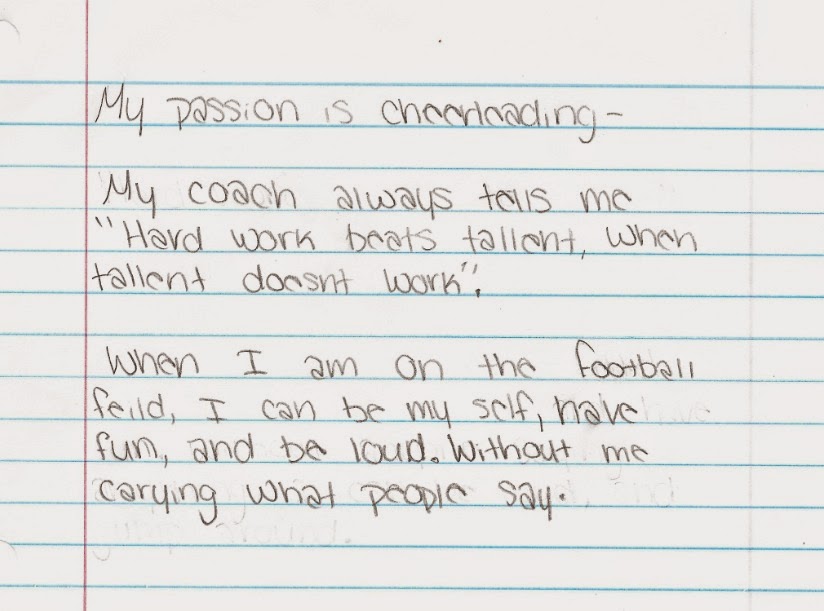 My passion is cheerleading-
My coach always tells me
"Hard work beats tallent, when
tallent doesnt work".
When I am on the football
feild, I can be my self, have
fun, and be loud. Without me
carying what people say.